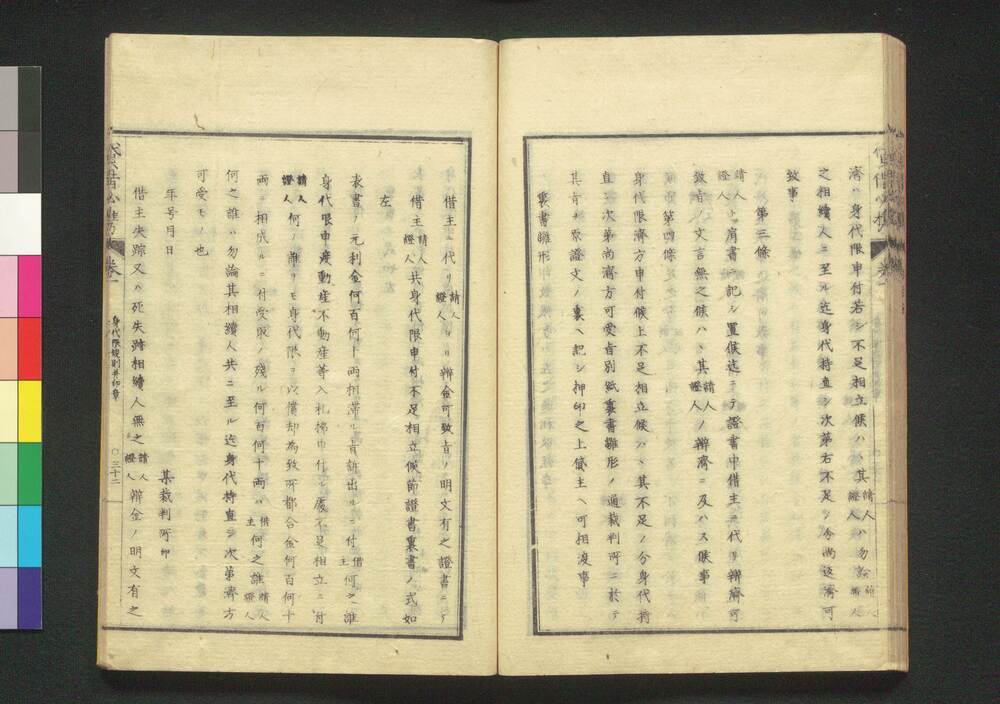 濟ハ身代限申付若シ不足相立候ハヽ其請人證人ハ勿論
之相續人ニ至ル迄身代持直シ次第右不足ノ分尚返濟可
致事
第三條
請人證人ト肩書ニ記シ置候迄ニテ證書中借主ニ代リ辨濟可
致旨ノ文言無之候ハヽ其請人證人ノ辨濟ニ及ハス候事
第四條
身代限濟方申付候上不足相立候ハヽ其不足ノ分身代持
直シ次第尚濟方可受旨別紙裏書雛形ノ通裁判所ニ於テ
其旨ヲ原證文ノ裏ヘ記シ押印之上貸主ヘ可相渡事
裏書雛形
借主ニ代リ請人證人ヨリ辨金可致旨ノ明文有之證書ニシテ
借主請人證人共身代限申付不足相立候節證書裏書ノ式如
左
表書ノ元利金何百何十兩相滯ル旨訴出ルニ付借主何之誰
身代限申渡動産不動産等入札拂申付ル處不足相立ニ付
請人證人何ノ誰ヲモ身代限ヲ以償却為致所都合金何百何十
兩ニ相成ルニ付受取ノ残ル何百何十兩ハ借主何之誰請人證人
何之誰ハ勿論其相續人共ニ至ル迄身代持直シ次第濟方
可受モノ也
年号月日
某裁判所印
借主失踪又ハ死失跡相續人無之請人證人辨金ノ明文有之
卷一
身代限規則并印章
○三十二